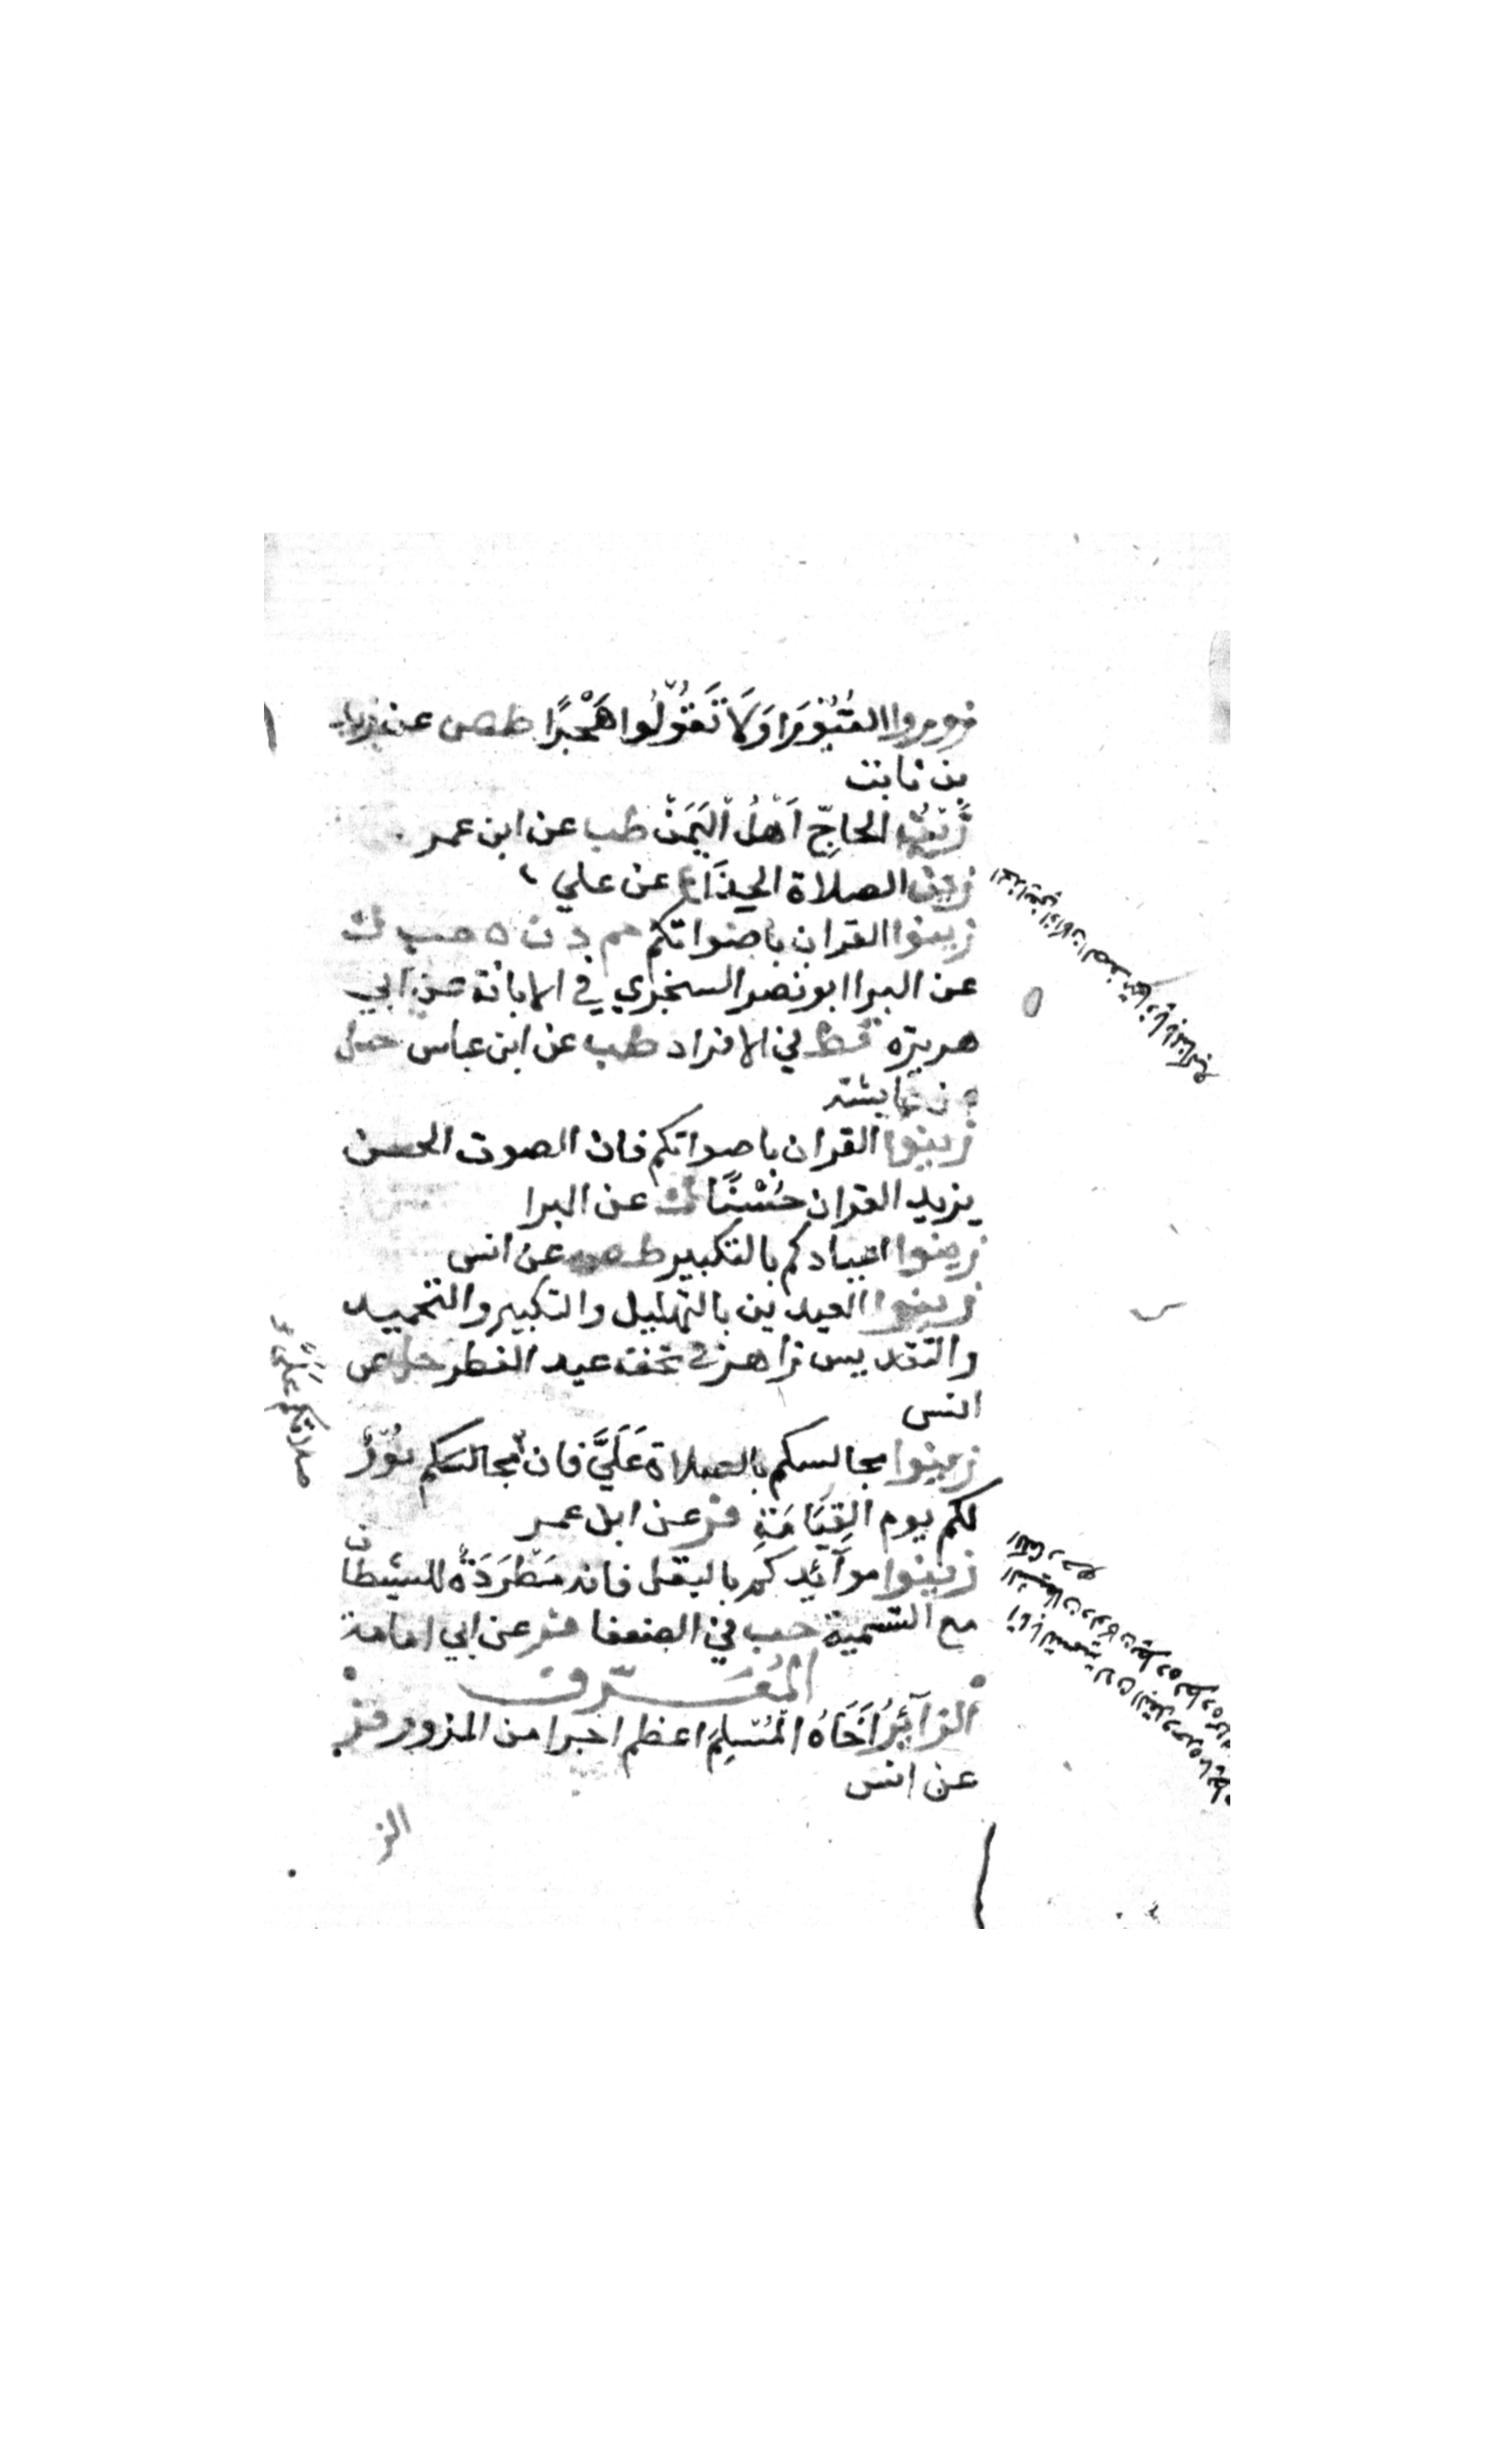 زوروا القُبُورَ وَلَا تَقُولُوا هَجْرًا طص عن زيد
بن ثابت
زَيْنُ الحاجّ اَهْلُ اليَمَنْ طب عن ابن عمر
زين الصلاة الحِذَاءُ ع عن علي
زينوا القران باصواتكم حم د ن ه حب ك
عن البرا ابو نصر السنجزي في الابانة عن ابي
هريرة قط في الافراد طب عن ابن عباس حل
عن عايشة
زينوا القران باصواتكم فان الصوت الحسن
يزيد القران حُسْنًا ك عن البرا
زينوا اعيادكم بالتكبير طص عن انس
زينوا العيدين بالتهليل والتكبير والتحميد
والتقديس زاهر في تحفة عيد الفطر حل عن
انس
زينوا مجالسكم بالصلاة عَلَيَّ فان
نُوْرٌ
لكم يوم القِيَامَةِ فر عن ابن عمر
زينوا موآئدكم بالبقل فانه مَطْرَدَةٌ للشيطان
مع التسمية حب في الضعفا فر عن ابي امامة
المُعَرَّف
الزآئِرُ اَخَاهُ المُسْلِمَ اعظم اجرا من المزور فر
عن انس
الز